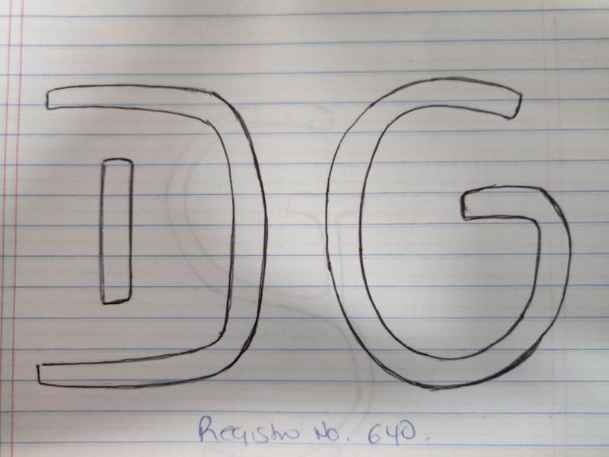 DG
Registro No. 640.